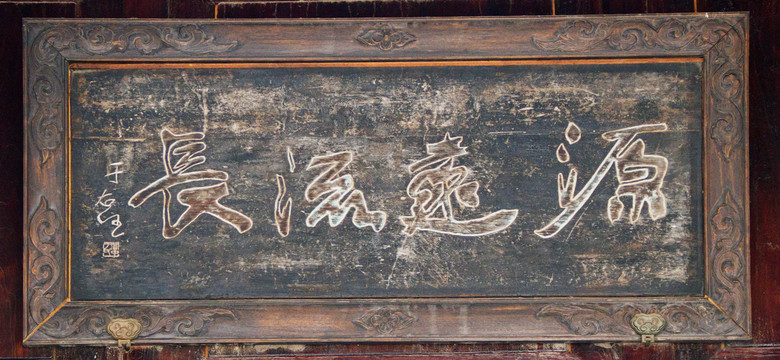 源遠流長
于右任